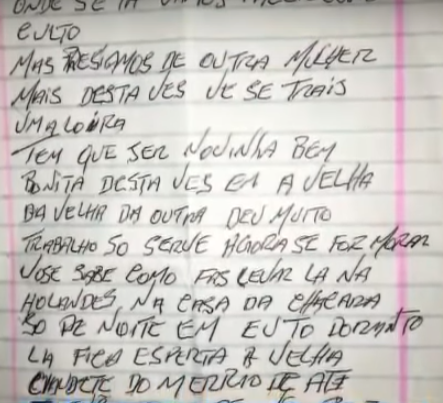 ONDE SE
CULTO
MAS PRESIAMOS DE OUTRA MULHER
MAIS DESTA VES VE SE TRAIS
UMA LOIRA
TEM QUE SER NOVINHA BEM
BONITA DESTA VES EM A VELHA
DA VELHA DA OUTRA DEU MUITO
TRABALHO SO SERVE AGORA SE FOR MORAR
VOSE SABE COMO FAS LEVAR LA NA
HOLANDES NA CASA DA CHACARA
SO DE NOITE EM EUTO DORMINTO
LA FICA ESPERTA A VELHA
DO DE ATE